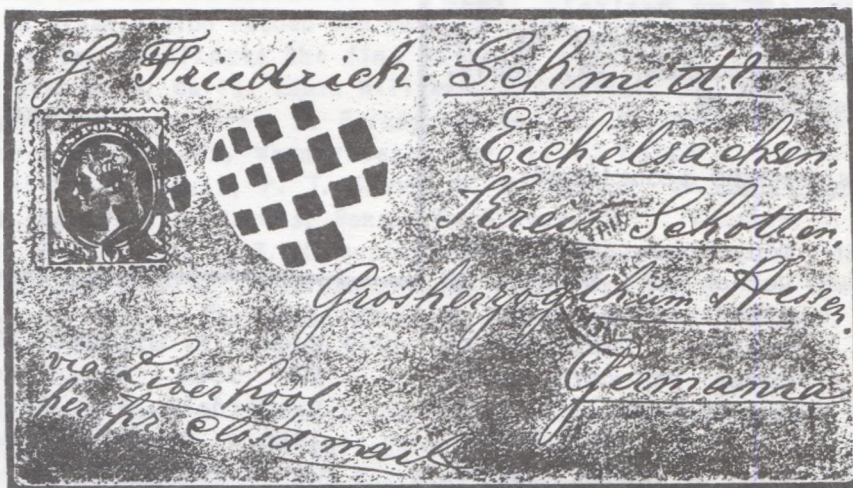 J Friedrich Schmidt.
Eichelsachsen.
Kreis Schotten.
PAID
Grosherzogthum Hessen.
Germania
via Liverpool
per pr Closd mail